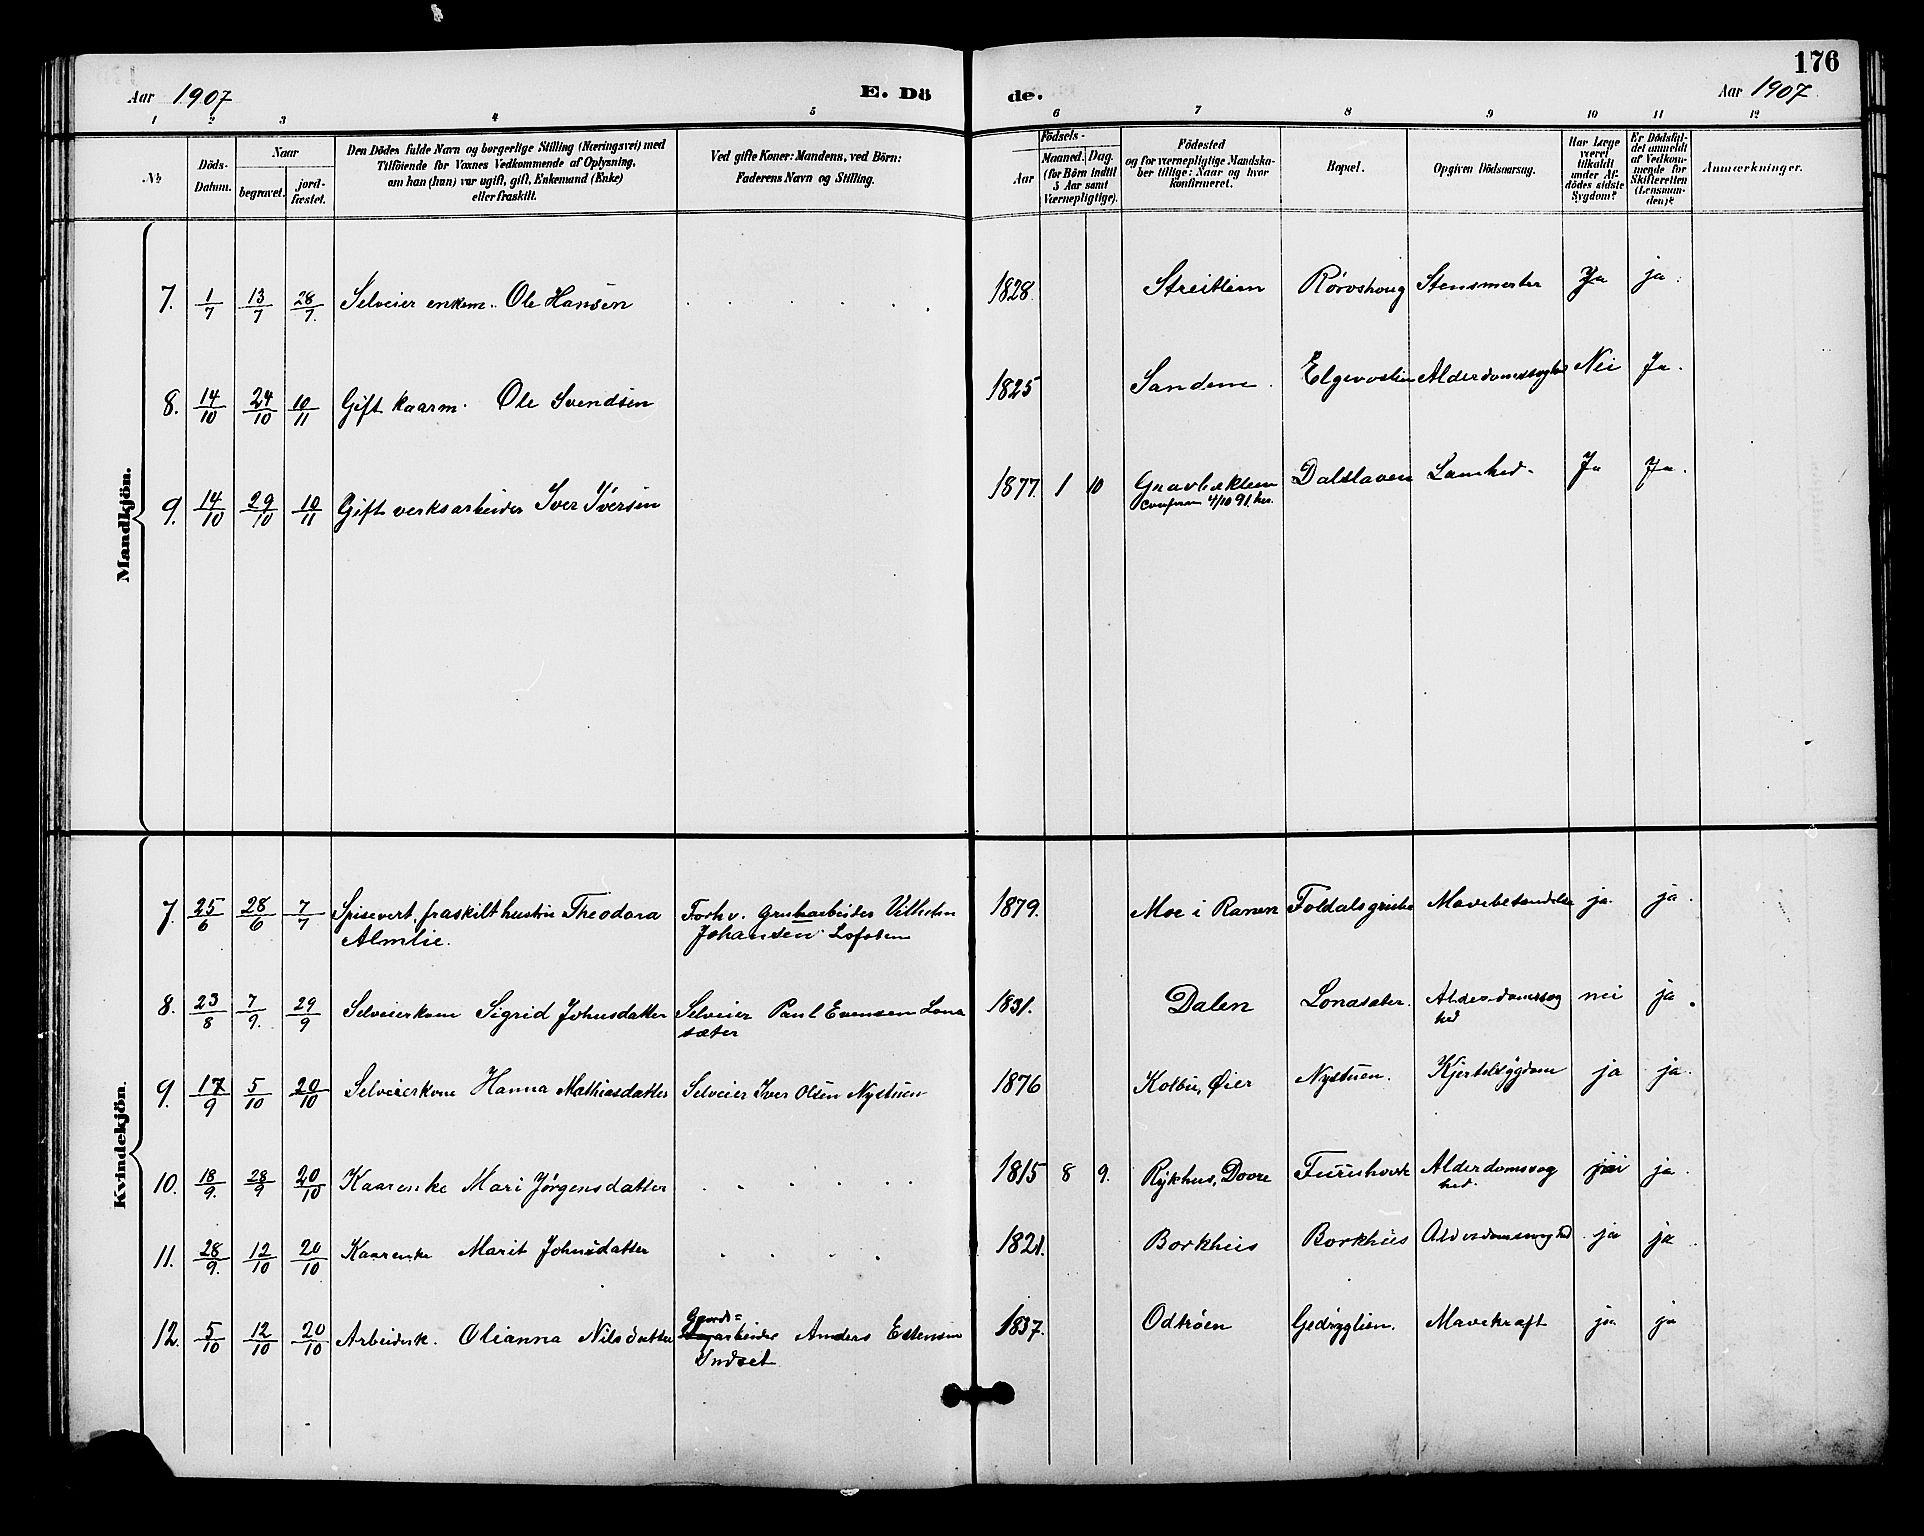 176
Aar 1907 E. Dö de. Aar 1907.
1 2 3 4 5 6 7 8 9 10 11 12
№
Döds-Datum.
Naar
begravet.
jord-fæstet.
Den Dödes fulde Navn og borgerlige Stilling (Næringsvei) med
Tilföiende for Voxnes Vedkommende af Oplysning,
om han (hun) var ugift, gift, Enkemand (Enke)
eller fraskilt.
Ved gifte Koner: Mandens, ved Börn:
Faderens Navn og Stilling.
Födsels-
Aar
Maaned. Dag.
(for Börn indtil
5 Aar samt
Værnepligtige).
Födested
og for værnepligtige Mandska-
ber tillige: Naar og hvor
konfirmeret.
Bopæl.
Opgiven Dödsaarsag.
Har Læge
været
tilkaldt
under Af-
dödes sidste
Sygdom?
Er Dödsfal-
det anmeldt
af Vedkom-
mende for
Skifteretten
(Lensman-
den)?
Anmærkninger.
Mandkjön.
7. 1/7 13/7 28/7. Selveier enkem. Ole Hansen 1828. Streitlien Rørvshoug Stensmerter Ja ja.
8. 14/10 24/10 10/11 Gift kaarm. Ole Svendsen 1825 Sandem. Alderdomssvaghed Nei Ja.
9. 14/10 29/10 10/11 Gift verksarbeider Iver Iversen 1877. 1 10 Gravbæklien Dalslaaen Lamhed. Ja Ja.
4/10 91. her.
Kvindekjön.
7. 25/6 28/6 7/7 Spisevert. fraskilt hustru Theodora Forhv. grubarbeider Vilhelm 1879. Moe i Ranen Foldalsgrube Mavebetændelse ja. ja.
Almlie. Johansen Lofoten
8. 23/8 7/9. 29/9 Selveierkone Sigrid Johnsdatter Selveier Paul Evensen Lona 1831. Dalen Lonasæter. Alderdomssvag nei ja.
sæter hed
9. 17/9 5/10 20/10 Selveierkone Hanna Mathiasdatter Selveier Iver Olsen Nystuen 1876 Kolbu, Øier Nystuen. Kjertelsygdom ja ja.
10. 18/9. 28/9 20/10 Kaarenke Mari Jørgensdatter 1815 8 9. Rykhus, Dovre Furuhovde Alderdomssvag ja.
hed.
11. 28/9. 12/10 20/10 Kaarenke Marit Johnsdatter 1821. Borkhus Borkhus Alderdomssvaghed ja ja
12. 5/10 12/10 20/10 Arbeidersk. Olianna Nilsdatter Gaards=arbeider Anders Estensen 1837. Odkrøen Gedrygglien. Mavekraft ja. ja
Indset